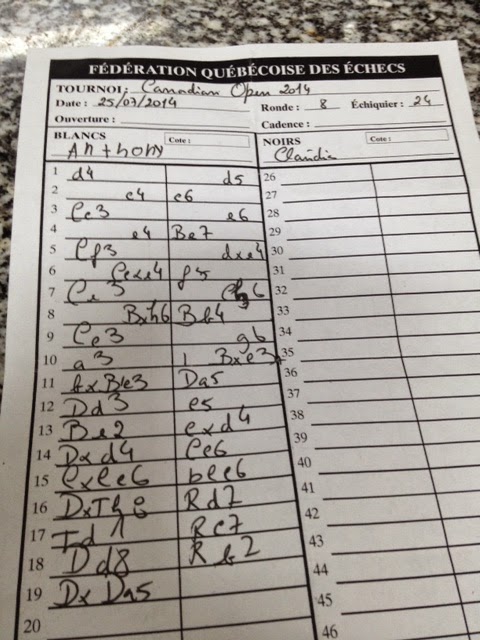 FÉDÉRATION QUÉBÉCOISE DES ÉCHECS
TOURNOI: Canadian Open 2014
Date : 25/07/2014 Ronde : 8 Échiquier : 24
Ouverture : Cadence :
BLANCS Cote : NOIRS Cote :
Anthony Claudia
1 d4 d5 26
2 c4 c6 27
3 Cc3 e6 28
4 e4 Be7 29
5 Cf3 dxe4 30
6 Cexe4 f5 31
7 Cc3 Ch6 32
8 Bxh6 Bb4 33
9 Ce3 g6 34
10 a3 Bxe3+ 35
11 Be3 Da5 36
12 Dd3 e5 37
13 Be2 exd4 38
14 Dxd4 Ce6 39
15 bce6 40
16 DxTh8 Rd7 41
17 Td1 Rc7 42
18 Dd8 Rb2 43
19 DxDa5 44
20 45
46